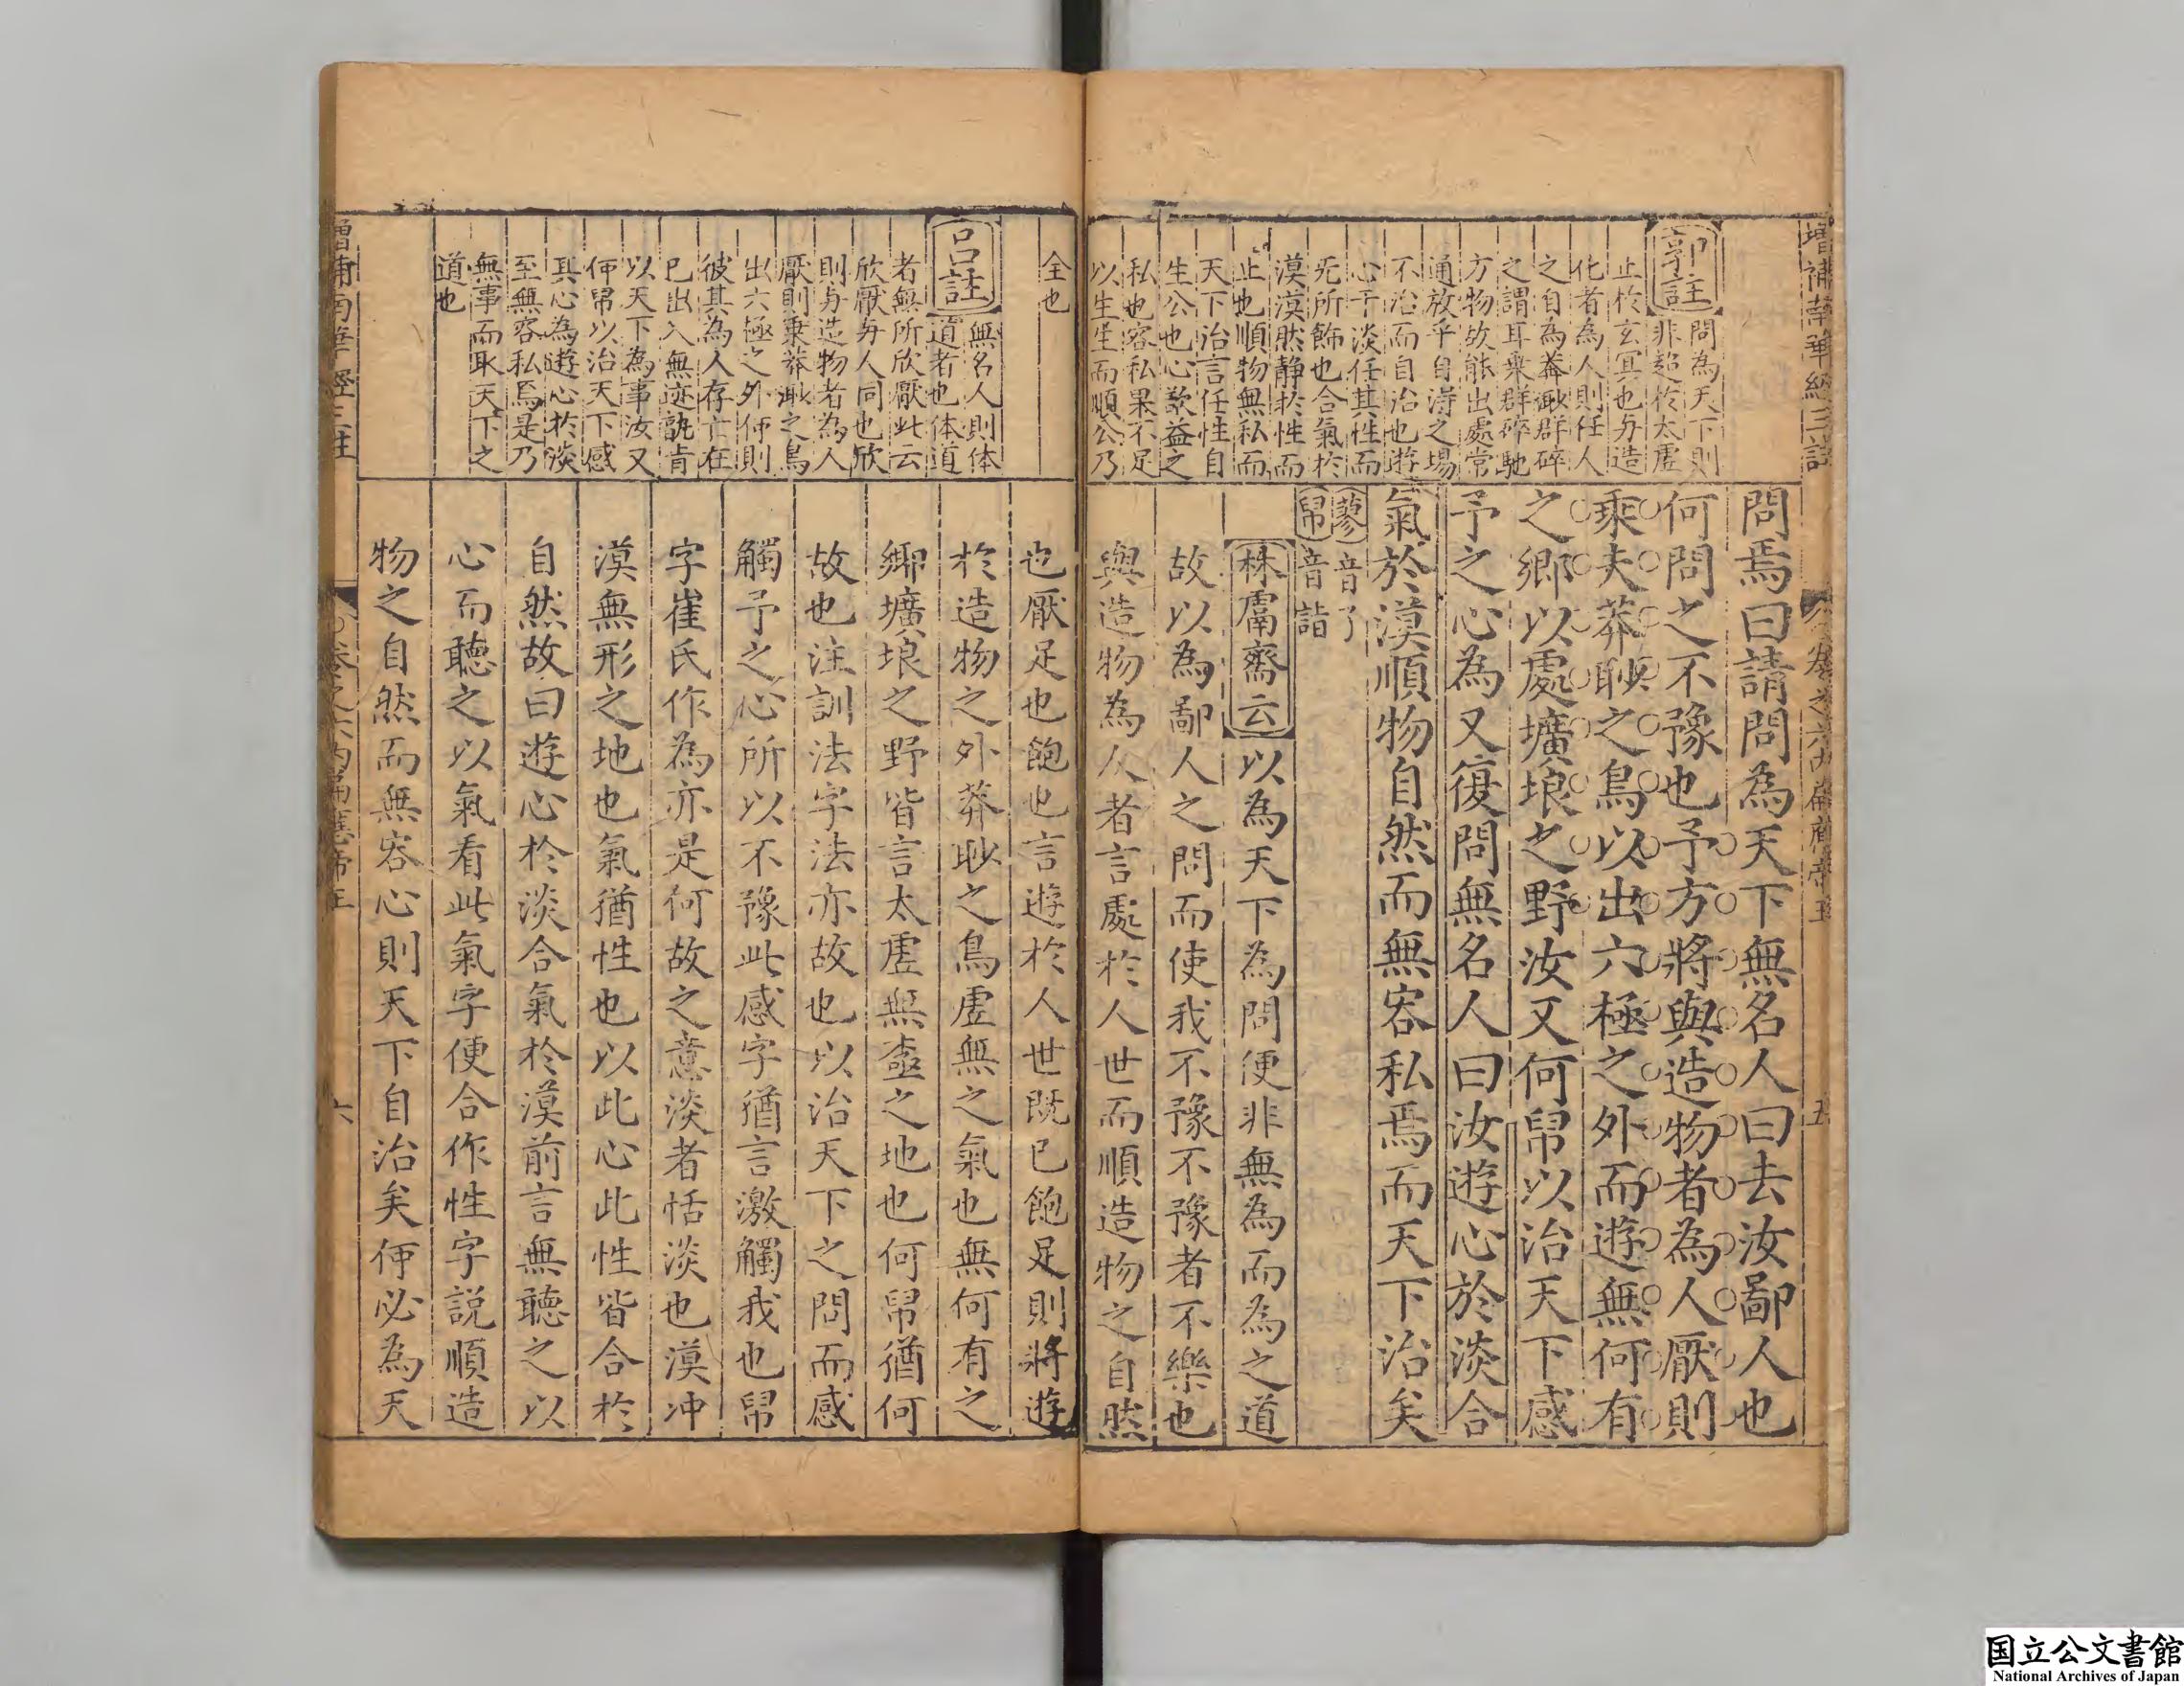 增補南華經三註
卷之六內篇應帝王
五
郭註
問為天下則
非超於太虛
止於玄冥也与造
化者為人則任人
之自為莽眇群碎
之謂耳乘群碎馳
方物故能出處常
通放乎自得之場
不治而自治也遊
心于淡任其性而
旡所飾也合氣於
漠漠然靜於性而
止也順物無私而
天下治言任性自
生公也心欲益之
私也容私果不足
以生生而順公乃
問焉曰請問為天下無名人曰去汝鄙人也
何問之不豫也予方將與造物者為人厭則
乘夫莽眇之鳥以出六極之外而遊無何有
之鄉以處壙埌之野汝又何帠以治天下感
予之心為又復問無名人曰汝遊心於淡合
氣於漠順物自然而無容私焉而天下治矣
蓼音了
帠音詣
林鬳齋云以為天下為問便非無為而為之道
故以為鄙人之問而使我不豫不豫者不樂也
與造物為人者言處於人世而順造物之自然
全也
呂註
無名人則体
道者也体道
者無所欣厭此云
欣厭与人同也欣
則与造物者為人
厭則乘莽眇之鳥
出六極之外何則
彼其為人存亡在
已出入無迹孰肯
以天下為事汝又
何帠以治天下感
其心為遊心於淡
至無容私焉是乃
無事而取天下之
道也
也厭足也飽也言遊於人世既已飽足則將遊
於造物之外莽眇之鳥虛無之氣也無何有之
鄉壙埌之野皆言太虛無壼之地也何帠猶何
故也注訓法字法亦故也以治天下之問而感
觸予之心所以不豫此感字猶言激觸我也帠
字崔氏作為亦是何故之意淡者恬淡也漠冲
漠無形之地也氣猶性也以此心此性皆合於
自然故曰遊心於淡合氣於漠前言無聽之以
心而聽之以氣看此氣字便合作性字說順造
物之自然而無容心則天下自治矣何必為天
增補南華經三註
卷之六內篇應帝王
六
国立公文書館
National Archives of Japan